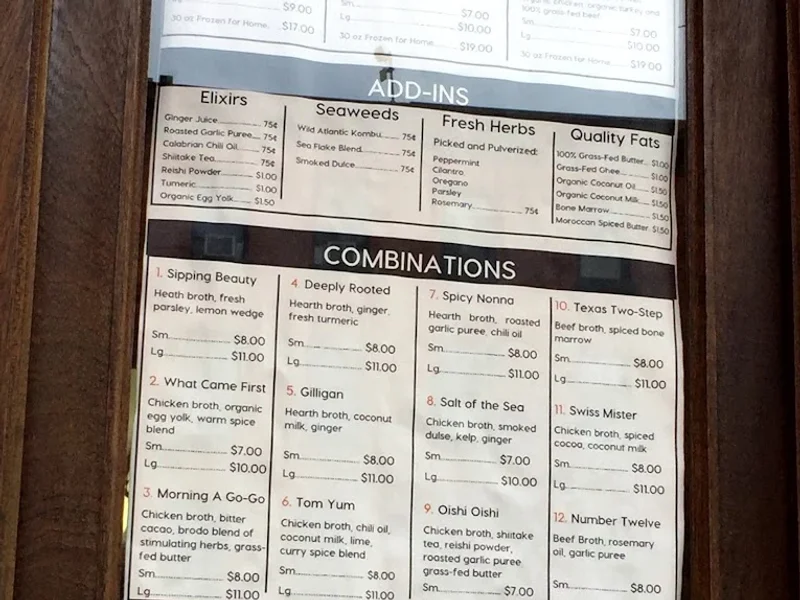 $9.00
30 oz Frozen for Home $17.00
Sm. $7.00
Lg $10.00
30 oz Frozen for Home $19.00
100% grass-fed beef
Sm. $7.00
Lg $10.00
30 oz Frozen for Home $19.00
ADD-INS
Elixirs
Ginger Juice 75¢
Roasted Garlic Puree 75¢
Calabrian Chili Oil 75¢
Shiitake Tea 75¢
Reishi Powder $1.00
Turmeric $1.00
Organic Egg Yolk $1.50
Seaweeds
Wild Atlantic Kombu 75¢
Sea Flake Blend 75¢
Smoked Dulce 75¢
Fresh Herbs
Picked and Pulverized:
Peppermint
Cilantro
Oregano
Parsley
Rosemary 75¢
Quality Fats
100% Grass-Fed Butter $1.00
Grass-Fed Ghee $1.00
Organic Coconut Oil $1.50
Organic Coconut Milk $1.50
Bone Marrow $1.50
Moroccan Spiced Butter $1.50
COMBINATIONS
1. Sipping Beauty
Heath broth, fresh
parsley, lemon wedge
Sm. $8.00
Lg $11.00
2. What Came First
Chicken broth, organic
egg yolk, warm spice
blend
Sm. $7.00
Lg $10.00
3. Morning A Go-Go
Chicken broth, bitter
cacao, brodo blend of
stimulating herbs, grass-
fed butter
Sm. $8.00
Lg. $11.00
4 Deeply Rooted
Hearth broth, ginger,
fresh turmeric
Sm. $8.00
Lg $11.00
5. Gilligan
Hearth broth, coconut
milk, ginger
Sm $8.00
Lg $11.00
6. Tom Yum
Chicken broth, chili oil,
coconut milk, lime,
curry spice blend
Sm. $8.00
Lg. $11.00
7. Spicy Nonna
Hearth broth, roasted
garlic puree, chili oil
Sm. $8.00
Lg $11.00
8. Salt of the Sea
Chicken broth, smoked
dulse, kelp, ginger
Sm. $7.00
Lg. $10.00
9. Oishi Oishi
Chicken broth, shiitake
tea, reishi powder,
roasted garlic puree
grass-fed butter
Sm. $7.00
10. Texas Two-Step
Beef broth, spiced bone
marrow
Sm $8.00
Lg $11.00
11. Swiss Mister
Chicken broth, spiced
cocoa, coconut milk
Sm $8.00
Lg $11.00
12. Number Twelve
Beef Broth, rosemary
oil, garlic puree
Sm. $8.00